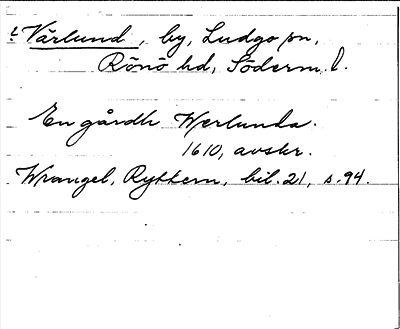 t Vårlund, by, Ludgo sn,
Rönö hd, Söderm. l.
En gårdh Werlunda.
1610, avskr.
Wrangel, Ryttern, bil. 21, s. 94.